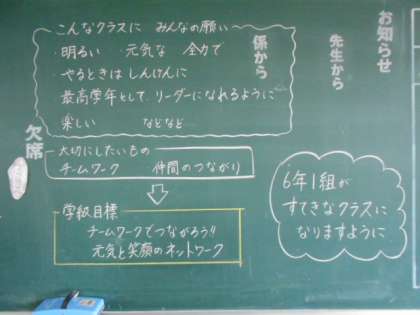 お知らせ
先生から
係から
欠席
こんなクラスに みんなの願い
・明るい ・元気な 全力で
・やるときは しんけんに
最高学年として、リーダーになれるように
楽しい などなど
大切にしたいもの
チームワーク 仲間のつながり
学級目標
チームワークでつながろう!!
元気と笑顔のネットワーク
6年1組が
すてきなクラスに
なりますように